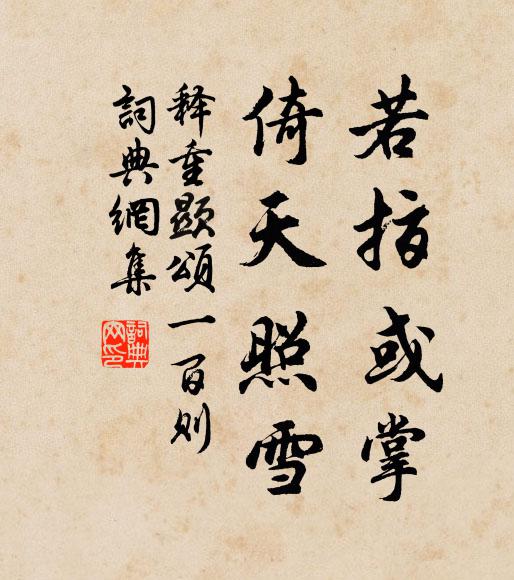 若指或掌
倚天照雪
释重顯頌一百则
詞典網集
詞典网印